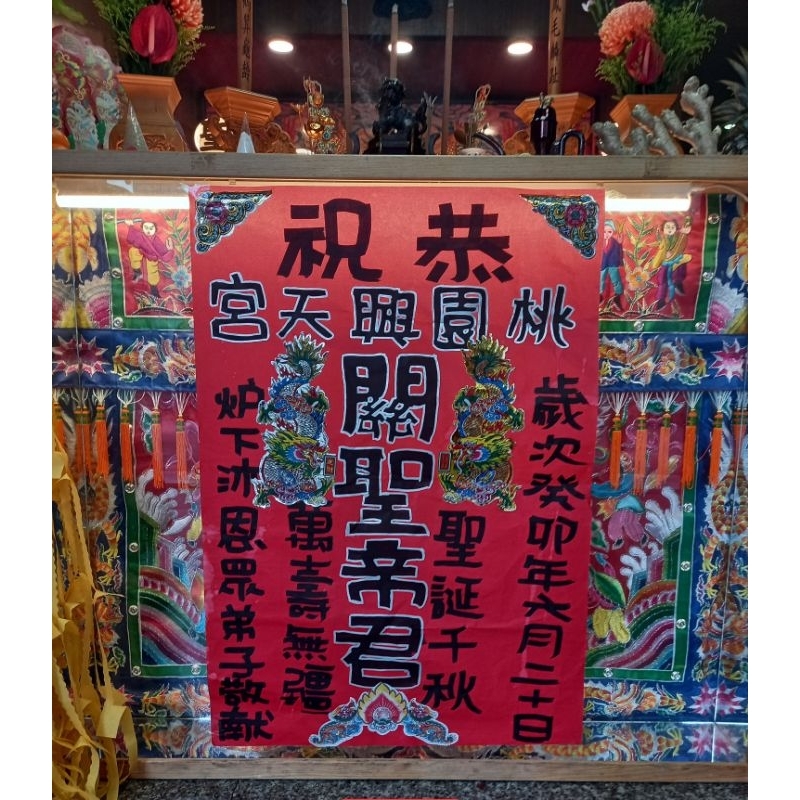 恭祝
桃園興天宮
歲次癸卯年六月二十日
聖誕千秋
關聖帝君
萬壽無疆
炉下沐恩眾弟子敬献